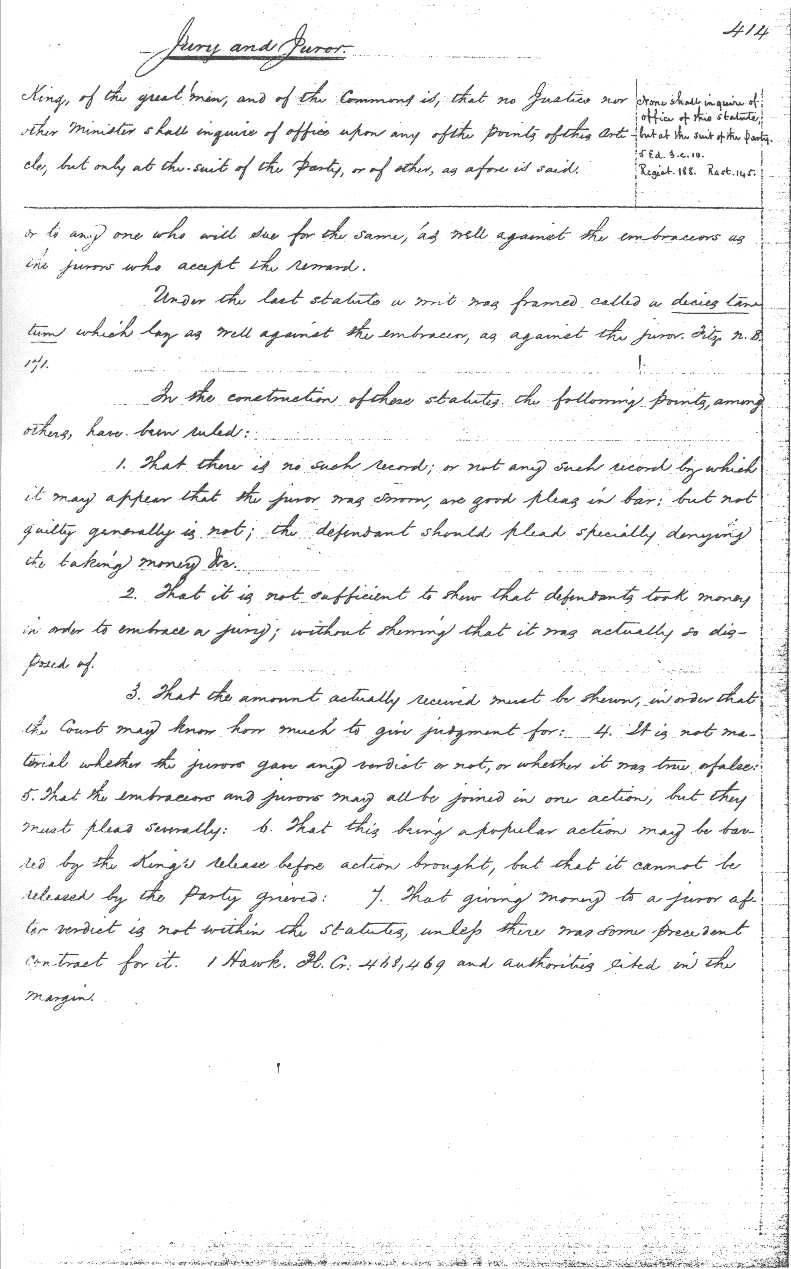 414
Jury and Juror.
King, of the great men, and of the Commons is, that no Justice nor
other Minister shall inquire of office upon any of the points of this Arti-
cle, but only at the suit of the Party, or of other, as afore is said.
None shall inquire of
office of this statute,
but at the suit of the party.
5 Ed. 3. c. 10.
Regist. 188. Rast. 145.
or to any one who will sue for the same, as well against the embraceors as
the jurors who accept the reward.
Under the last statute a writ was framed called a decies tan-
tum which lay as well against the embraceor, as against the juror. Fitz. N. B.
171.
In the construction of these statutes the following points, among
others, have been ruled:
1. That there is no such record; or not any such record by which
it may appear that the juror was sworn, are good pleas in bar: but not
guilty generally is not; the defendant should plead specially denying
the taking money &c.
2. That it is not sufficient to shew that defendants took money
in order to embrace a jury; without shewing that it was actually so dis-
posed of.
3. That the amount actually received must be shewn, in order that
the Court may know how much to give judgment for: 4. It is not ma-
terial whether the jurors gave any verdict or not, or whether it was true or false:
5. That the embraceors and jurors may all be joined in one action, but they
must plead severally: 6. That this being a popular action may be bar-
red by the King's release before action brought, but that it cannot be
released by the Party grieved: 7. That giving money to a juror af-
ter verdict is not within the statutes, unless there was some precedent
contract for it. 1 Hawk. Pl. Cr. 468, 469 and authorities cited in the
margin.